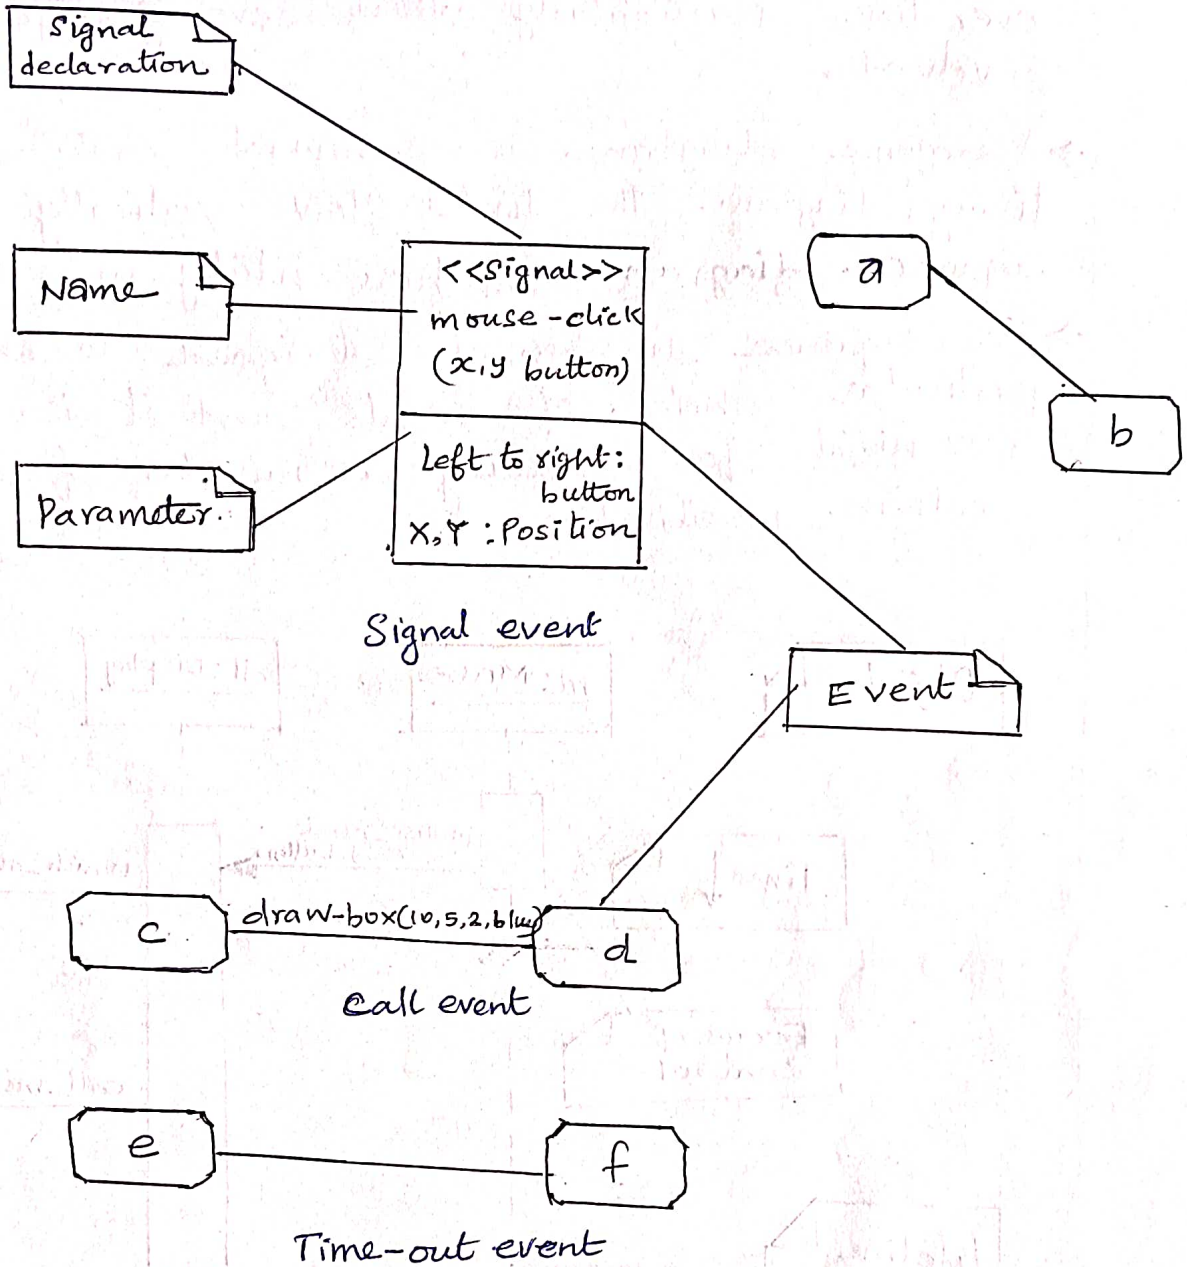 Signal
declaration
Name
<<Signal>>
mouse-click
(x,y button)
a
b
Parameter.
Left to right:
button
X,Y : Position
Signal event
Event
c
draw-box(10,5,2,blue)
d
Call event
e
f
Time-out event